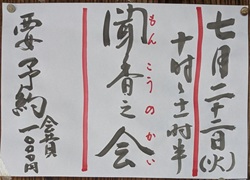 七月二十二日(火)
十時〜十一時半
聞香之会
もんこうのかい
要予約
会費一〇〇〇円